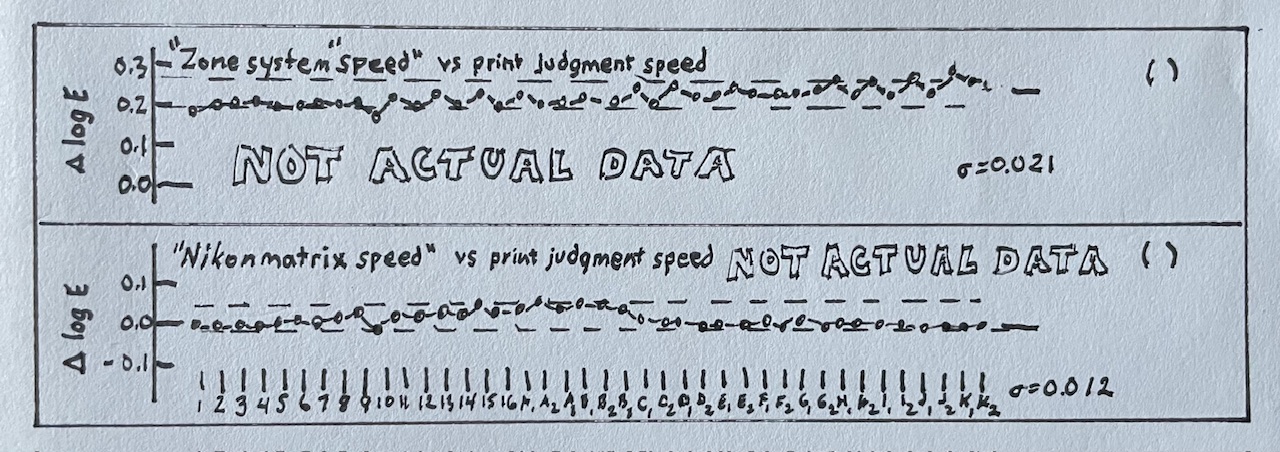 "Zone system" speed" vs print judgment speed
( )
0.3
0.2
0.1
0.0
Δ log E
NOT ACTUAL DATA
σ=0.021
"Nikon matrix speed" vs print judgment speed NOT ACTUAL DATA ( )
0.1
0.0
-0.1
Δ log E
1 2 3 4 5 6 7 8 9 10 11 12 13 14 15 16 A₁ A₂ B₁ B₂ C₁ C₂ D₁ D₂ E₁ E₂ F₁ F₂ G₁ G₂ H₁ I₂ J₁ J₂ K₁ K₂
σ=0.012